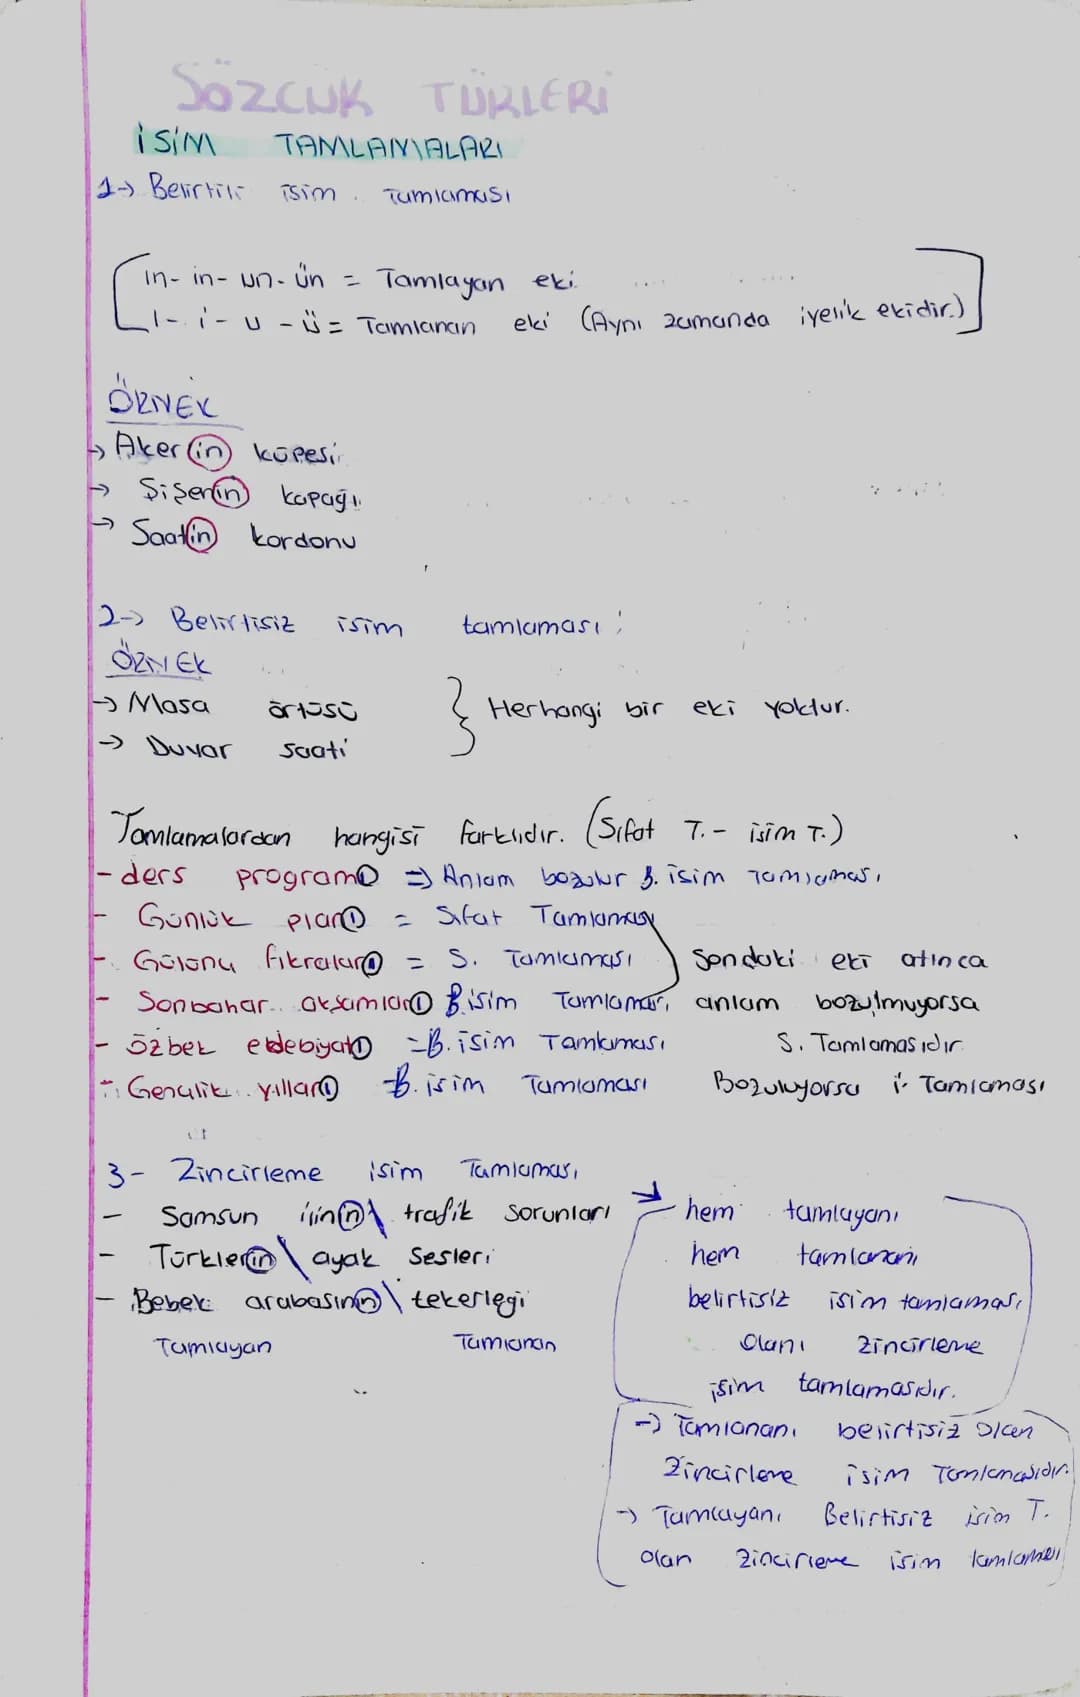 SÖZCÜK TÜRLERİ
İSİM TAMLAMALARI
1-> Belirtili isim Tamlaması
ın- in- un- ün = Tamlayan eki
ı- i- u- ü = Tamlanan eki (Aynı zamanda iyelik ekidir.)
ÖRNEK
-> Akerin küpesi
-> Şişenin kapağı
-> Saatin kordonu
2-> Belirtisiz isim tamlaması:
ÖRNEK
-> Masa örtüsü
-> Duvar saati
} Herhangi bir eki yoktur.
Tamlamalardan hangisi farklıdır. (Sıfat T. - isim T.)
- ders programı => Anlam bozulur B. isim Tamlaması
- Günlük planı = Sıfat Tamlaması
- Gülünç fıkraları = S. Tamlaması
- Sonbahar akşamları B. isim Tamlaması
- Özbek edebiyatı = B. isim Tamlaması
- Gençlik yılları = B. isim Tamlaması
Sondaki eki atınca
anlam bozulmuyorsa
S. Tamlamasıdır
Bozuluyorsa i. Tamlaması
3- Zincirleme isim Tamlaması
- Samsun ilinin \ trafik sorunları
- Türklerin \ ayak Sesleri
- Bebek arabasının \ tekerleği
Tamlayan Tamlanan
-> hem tamlayanı
hem tamlananı
belirtisiz isim tamlaması
olanı zincirleme
isim tamlamasıdır.
-> Tamlananı belirtisiz olan
Zincirleme isim Tamlamasıdır.
-> Tamlayanı Belirtisiz isim T.
olan zincirleme isim tamlaması